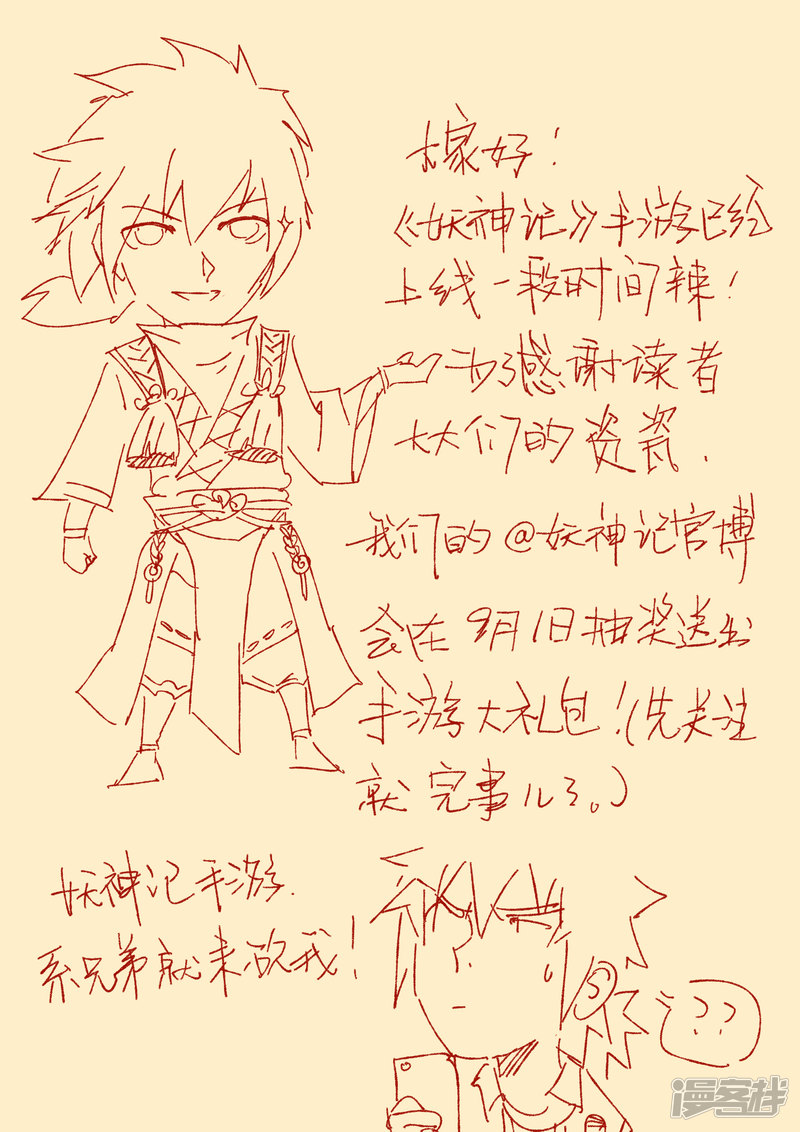 大家好!
《妖神记》手游已经
上线一段时间辣!
为了感谢读者
大大们的资瓷.
我们的@妖神记官博
会在9月1日抽奖送出
手游大礼包!(先关注
就完事儿了。)
妖神记手游.
系兄弟就来砍我!
??
漫客栈